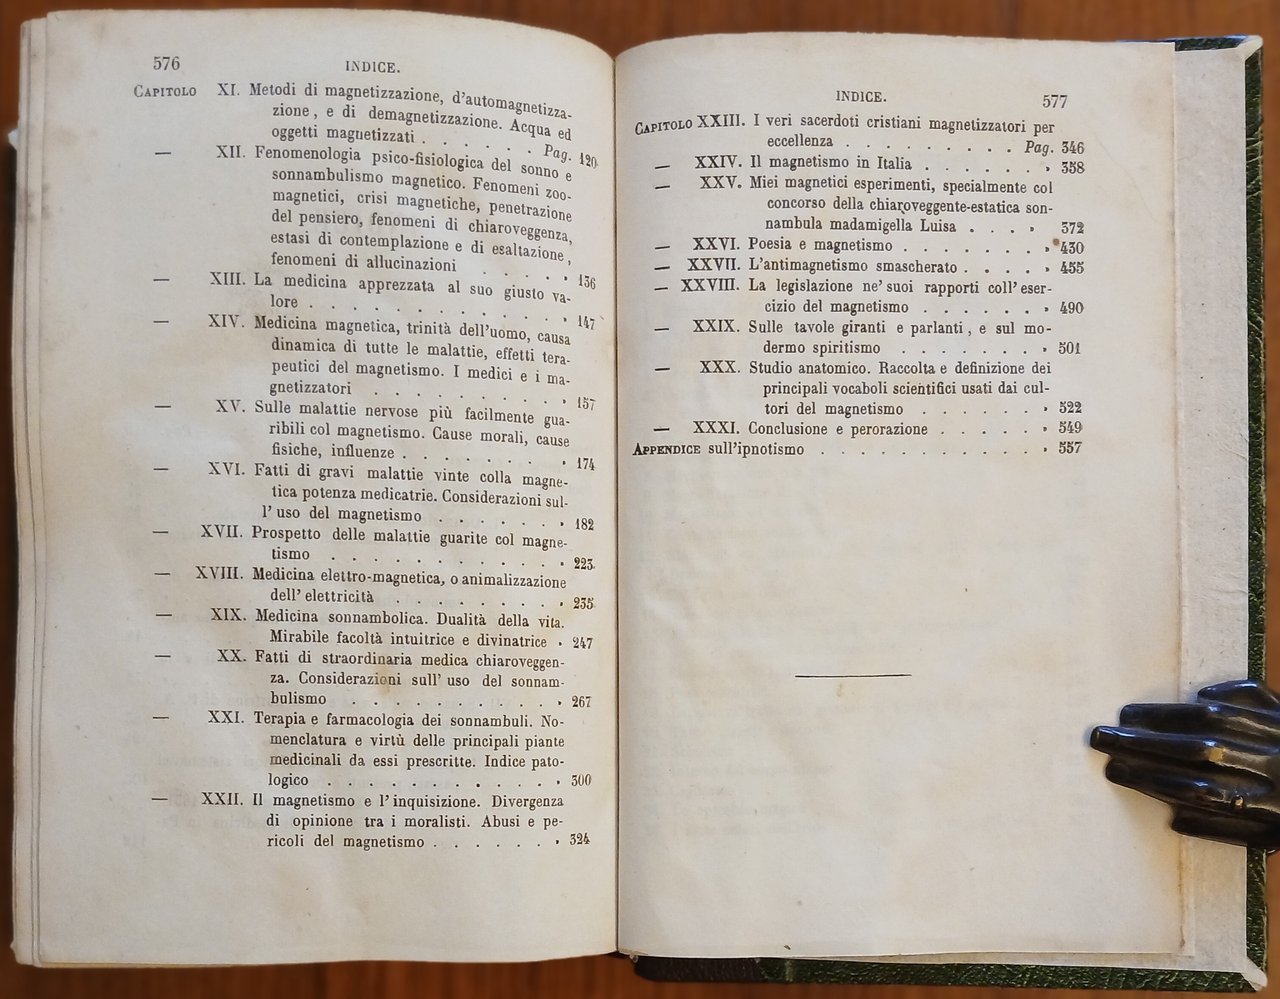 576
INDICE.
CAPITOLO XI. Metodi di magnetizzazione, d'automagnetizza-
zione, e di demagnetizzazione. Acqua ed
oggetti magnetizzati . . . . . . Pag. 120
— XII. Fenomenologia psico-fisiologica del sonno e
sonnambulismo magnetico. Fenomeni zoo-
magnetici, crisi magnetiche, penetrazione
del pensiero, fenomeni di chiaroveggenza,
estasi di contemplazione e di esaltazione,
fenomeni di allucinazioni . . . . . » 136
— XIII. La medicina apprezzata al suo giusto va-
lore . . . . . . . . . . . » 147
— XIV. Medicina magnetica, trinità dell'uomo, causa
dinamica di tutte le malattie, effetti tera-
peutici del magnetismo. I medici e i ma-
gnetizzatori . . . . . . . . . » 157
— XV. Sulle malattie nervose più facilmente gua-
ribili col magnetismo. Cause morali, cause
fisiche, influenze . . . . . . . . » 174
— XVI. Fatti di gravi malattie vinte colla magne-
tica potenza medicatrie. Considerazioni sul-
l'uso del magnetismo . . . . . . » 182
— XVII. Prospetto delle malattie guarite col magne-
tismo . . . . . . . . . . . » 223
— XVIII. Medicina elettro-magnetica, o animalizzazione
dell'elettricità . . . . . . . . » 235
— XIX. Medicina sonnambolica. Dualità della vita.
Mirabile facoltà intuitrice e divinatrice » 247
— XX. Fatti di straordinaria medica chiaroveggen-
za. Considerazioni sull'uso del sonnam-
bulismo . . . . . . . . . . » 267
— XXI. Terapia e farmacologia dei sonnambuli. No-
menclatura e virtù delle principali piante
medicinali da essi prescritte. Indice pato-
logico . . . . . . . . . . . » 300
— XXII. Il magnetismo e l'inquisizione. Divergenza
di opinione tra i moralisti. Abusi e pe-
ricoli del magnetismo . . . . . . » 324
INDICE.
577
CAPITOLO XXIII. I veri sacerdoti cristiani magnetizzatori per
eccellenza . . . . . . . . . Pag. 346
— XXIV. Il magnetismo in Italia . . . . . . » 358
— XXV. Miei magnetici esperimenti, specialmente col
concorso della chiaroveggente-estatica son-
nambula madamigella Luisa . . . » 372
— XXVI. Poesia e magnetismo . . . . . . . » 430
— XXVII. L'antimagnetismo smascherato . . . . » 455
— XXVIII. La legislazione ne' suoi rapporti coll'eser-
cizio del magnetismo . . . . . . » 490
— XXIX. Sulle tavole giranti e parlanti, e sul mo-
dermo spiritismo . . . . . . . » 501
— XXX. Studio anatomico. Raccolta e definizione dei
principali vocaboli scientifici usati dai cul-
tori del magnetismo . . . . . . » 522
— XXXI. Conclusione e perorazione . . . . . » 549
APPENDICE sull'ipnotismo . . . . . . . . . . . » 557